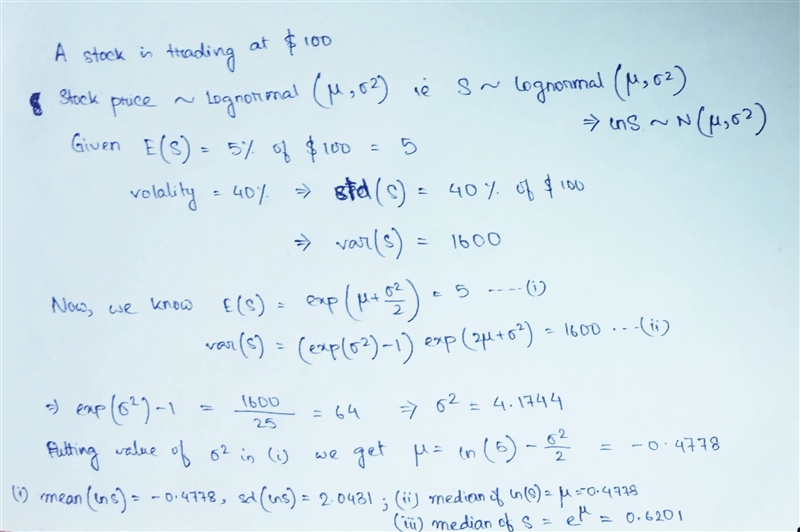 A stock is trading at $100
Stock price ~ Lognormal (μ, σ²) ie S ~ lognormal (μ, σ²)
⇒ lnS ~ N(μ, σ²)
Given E(S) = 5% of $100 = 5
volality = 40% ⇒ std(S) = 40% of $100
⇒ var(S) = 1600
Now, we know E(S) = exp(μ + σ²/2) = 5 ----(i)
var(S) = (exp(σ²)-1) exp(2μ+σ²) = 1600 ...(ii)
⇒ exp(σ²)-1 = 1600/25 = 64 ⇒ σ² = 4.1744
Putting value of σ² in (i) we get μ = ln(5) - σ²/2 = -0.4778
(i) mean(lnS) = -0.4778, sd(lnS) = 2.0431; (ii) median of ln(S) = μ = -0.4778
(iii) median of S = e^μ = 0.6201